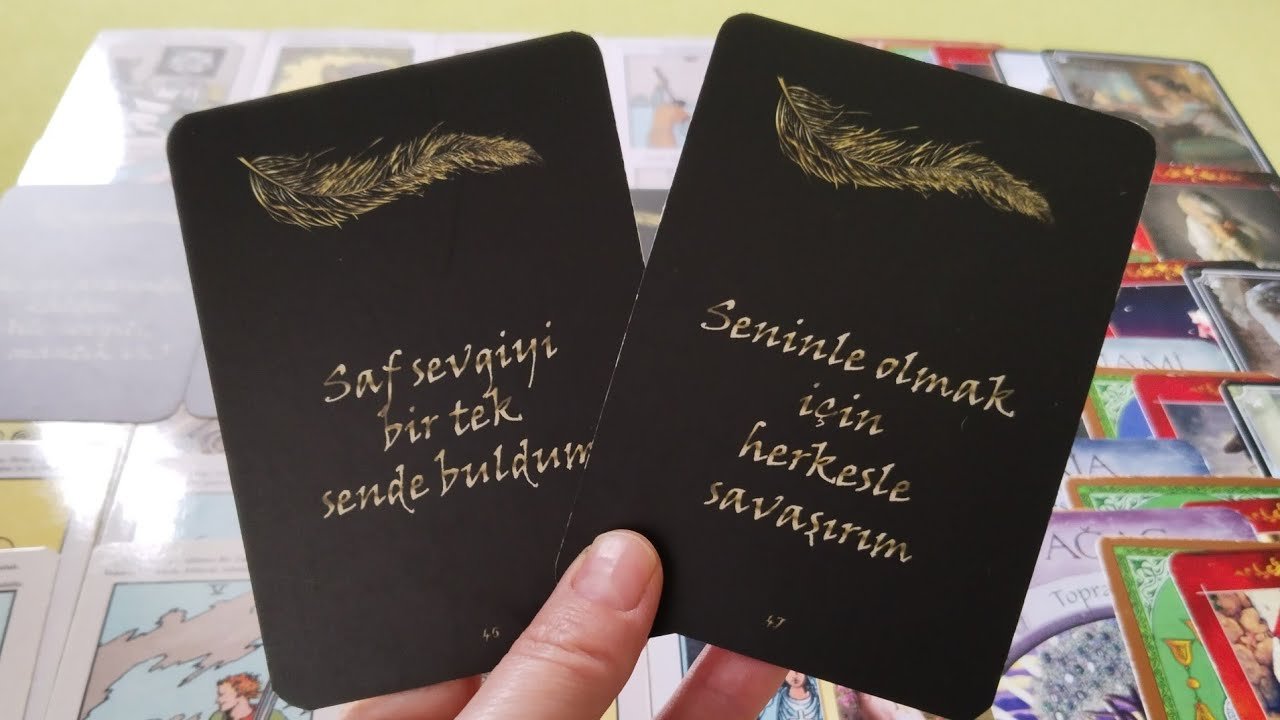 Saf sevgiyi
bir tek
sende buldum
45
Seninle olmak
için
herkesle
savaşırım
47
AĞAÇ
Topra